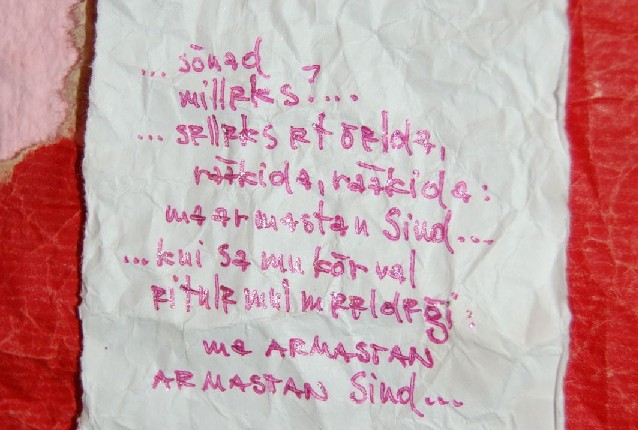 ... sõnad
milleks?...
... selleks et öelda,
rääkida, rääkida:
ma armastan Sind...
...kui sa mu kõrval
ei tule mul meeldegi:
ma ARMASTAN
ARMASTAN Sind...